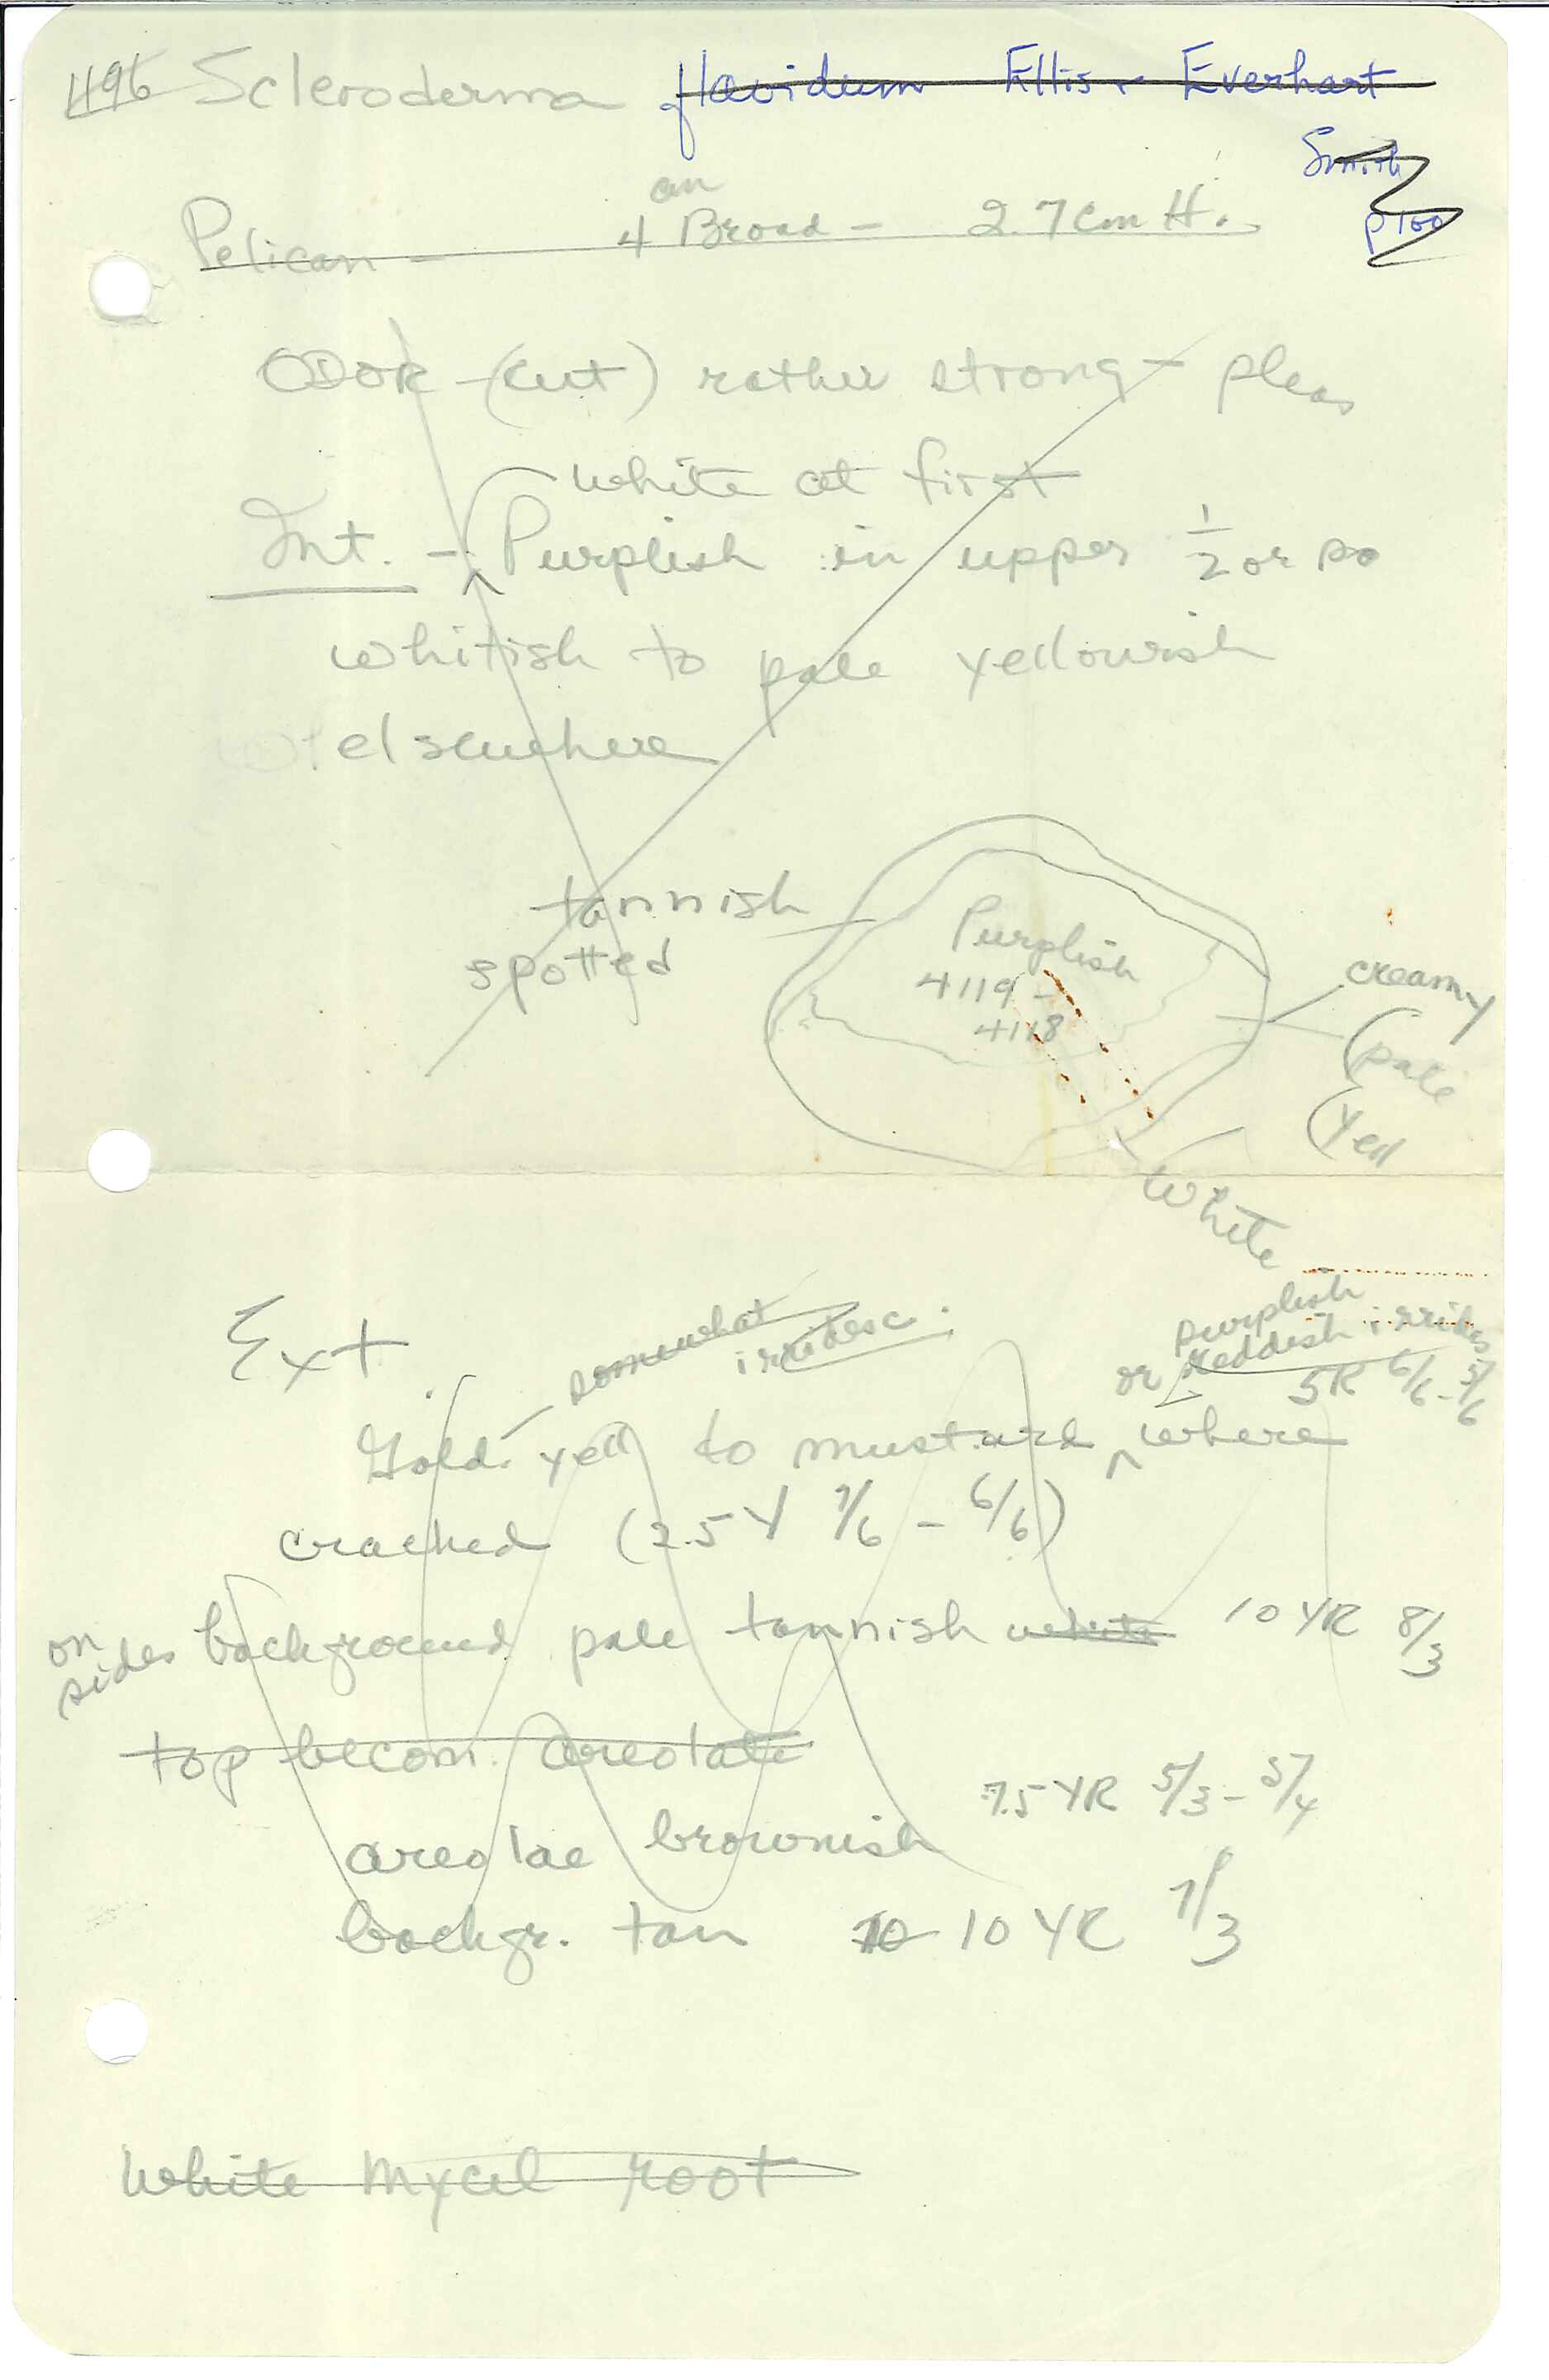 496 Scleroderma flavidum Ellis & Everhart
Smith
p 100
Pelican - 4 cm Broad - 2.7 cm H.
ODOR - (cut) rather strong - pleas
white at first
Int. - Purplish in upper 1/2 or so
whitish to pale yellowish
elsewhere
tannish
spotted
Purplish
4119 -
4118
creamy
(pale
(Yell
white
Ext
somewhat
irridesc.
purplish
or reddish irrides
5R 6/6 - 5/6
Gold. yell to mustard where
cracked (2.5 Y 7/6 - 6/6)
on
sides background pale tannish white 10 YR 8/3
top becom. areolate
areolae brownish 7.5 YR 5/3 - 5/4
backgr. tan 10 10 YR 7/3
White Mycel root